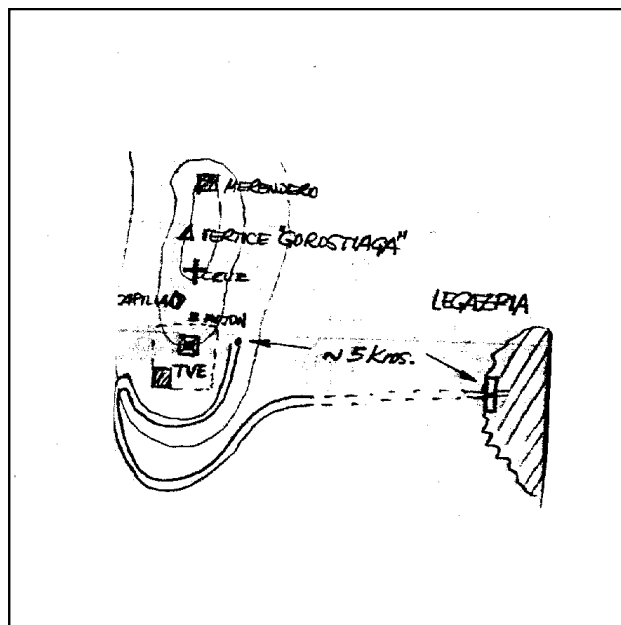 MERENDERO
VERTICE "GOROSTIAGA"
CRUZ
CAPILLA
MOJON
TVE
LEGAZPIA
~ 5 Kms.